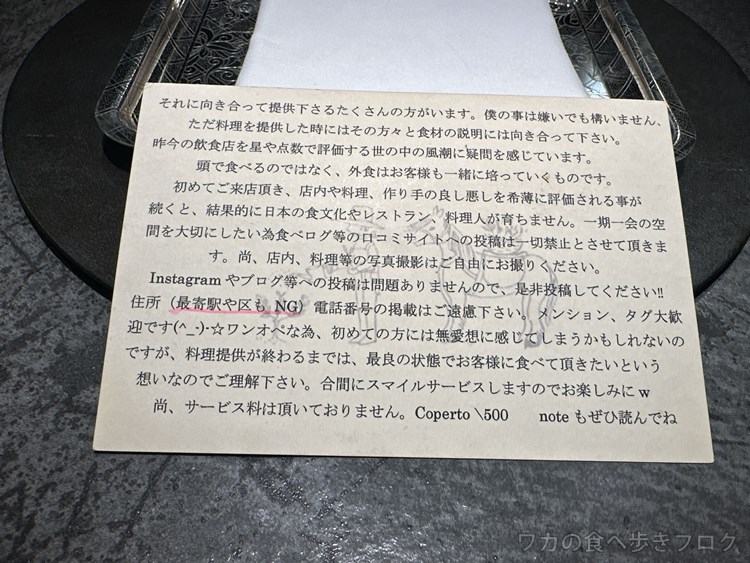 それに向き合って提供下さるたくさんの方がいます。僕の事は嫌いでも構いません、
ただ料理を提供した時にはその方々と食材の説明には向き合って下さい。
昨今の飲食店を星や点数で評価する世の中の風潮に疑問を感じています。
頭で食べるのではなく、外食はお客様も一緒に培っていくものです。
初めてご来店頂き、店内や料理、作り手の良し悪しを希薄に評価される事が
続くと、結果的に日本の食文化やレストラン、料理人が育ちません。一期一会の空
間を大切にしたい為食べログ等の口コミサイトへの投稿は一切禁止とさせて頂きま
す。尚、店内、料理等の写真撮影はご自由にお撮りください。
Instagram やブログ等への投稿は問題ありませんので、是非投稿してください!!
住所（最寄駅や区も NG）電話番号の掲載はご遠慮下さい。メンション、タグ大歓
迎です(^_-)-☆ワンオペな為、初めての方には無愛想に感じてしまうかもしれないの
ですが、料理提供が終わるまでは、最良の状態でお客様に食べて頂きたいという
想いなのでご理解下さい。合間にスマイルサービスしますのでお楽しみに w
尚、サービス料は頂いておりません。Coperto \500　note もぜひ読んでね
ワカの食べ歩きブログ